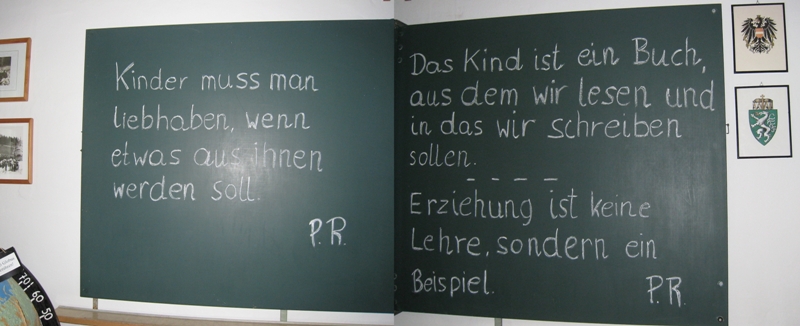 Kinder muss man
liebhaben, wenn
etwas aus ihnen
werden soll.
P.R.
Das Kind ist ein Buch,
aus dem wir lesen und
in das wir schreiben
sollen.
Erziehung ist keine
Lehre, sondern ein
Beispiel.
P.R.
70 60 50